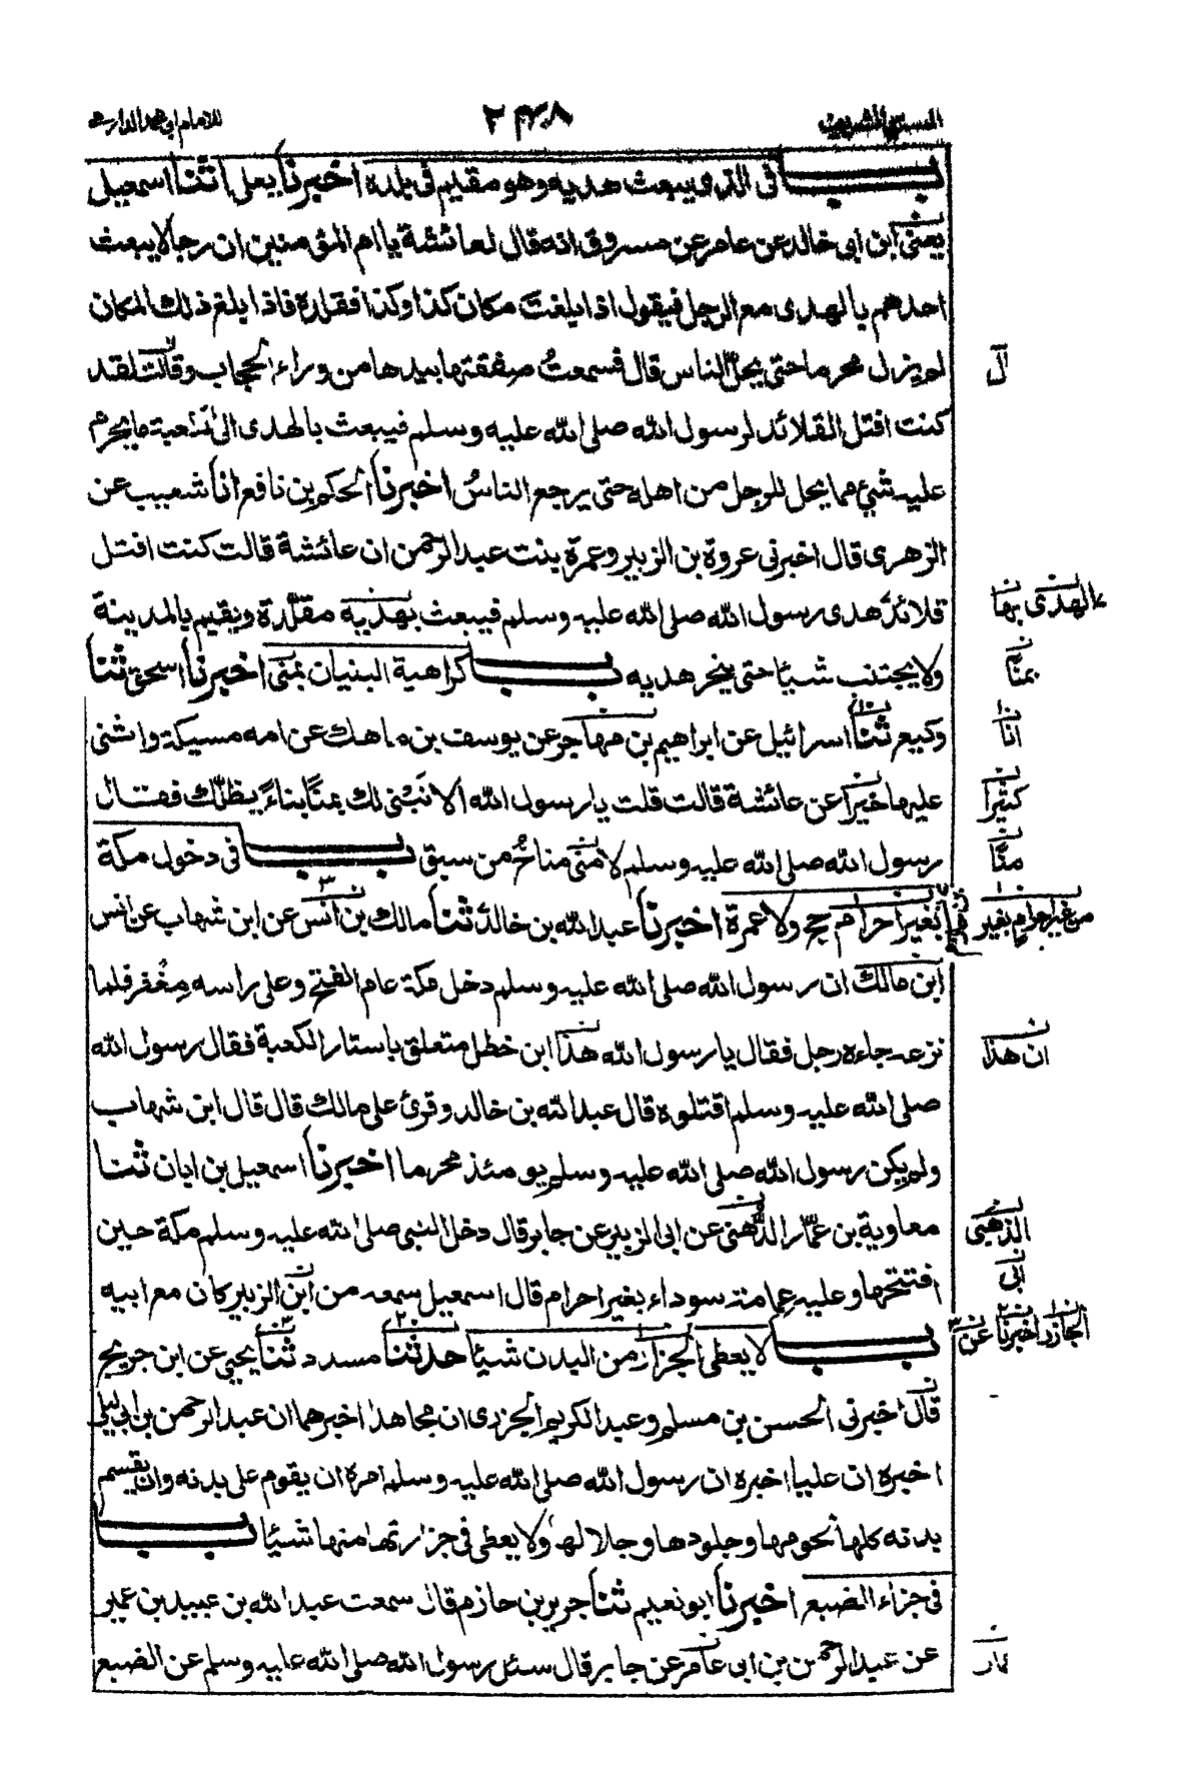 المسند الشريف ٢٤٨ للامام ابى محمد الدارمى
باب فى الذى يبعث هديه وهو مقيم فى بلده اخبرنا يعلى انثنا اسمعيل
يعنى ابن ابى خالد عن عامر عن مسروق انه قال لعائشة يا ام المؤمنين ان رجالا يبعث
احدهم بالهدى مع الرجل فيقول اذا بلغت مكان كذا وكذا فقلده فاذا بلغ ذلك المكان
لم يزل محرما حتى يحل الناس قال فسمعت صفقتها بيدها من وراء الحجاب وقالت لقد
ل
كنت افتل القلائد لرسول الله صلى الله عليه وسلم فيبعث بالهدى الى الكعبة ما يحرم
عليه شئ مما يحل للرجل من اهله حتى يرجع الناس اخبرنا الحكم بن نافع انا شعيب عن
الزهرى قال اخبرنى عروة بن الزبير وعمرة بنت عبد الرحمن ان عائشة قالت كنت افتل
قلائد هدى رسول الله صلى الله عليه وسلم فيبعث بهديه مقلدة ويقيم بالمدينة
الهدى بها
ولا يجتنب شيئا حتى ينحر هديه باب كراهية البنيان بمنى اخبرنا اسحق ثنا
بمنا
وكيع ثنا اسرائيل عن ابراهيم بن مهاجر عن يوسف بن ماهك عن امه مسيكة واثنى
انا
عليها خيرا عن عائشة قالت قلت يا رسول الله الا نبنى لك بمنا بناء يظلك فقال
كثيرا
رسول الله صلى الله عليه وسلم لا منى مناخ من سبق باب فى دخول مكة
منا
بغير احرام حج ولا عمرة اخبرنا عبد الله بن خالد ثنا مالك بن انس عن ابن شهاب عن انس
من غير احرام بغير
ابن مالك ان رسول الله صلى الله عليه وسلم دخل مكة عام الفتح وعلى راسه مغفر فلما
نزعه جاءه رجل فقال يا رسول الله هذا ابن خطل متعلق باستار الكعبة فقال رسول الله
ان هذا
صلى الله عليه وسلم اقتلوه قال عبد الله بن خالد وقرئ على مالك قال قال ابن شهاب
ولم يكن رسول الله صلى الله عليه وسلم يومئذ محرما اخبرنا اسمعيل بن ابان ثنا
معاوية بن عمار الدهنى عن ابى الزبير عن جابر قال دخل النبى صلى الله عليه وسلم مكة حين
الذهبى
افتتحها وعليه عمامة سوداء بغير احرام قال اسمعيل سمعه من ابن الزبير كان مع ابيه
ابى
باب لا يعطى الجزار من البدن شيئا حدثنا مسدد ثنا يحيى عن ابن جريج
الجازر اخبرنا عن
قال اخبرنى الحسن بن مسلم وعبد الكريم الجزرى ان مجاهدا اخبرهما ان عبد الرحمن بن ابى ليلى
اخبره ان عليا اخبره ان رسول الله صلى الله عليه وسلم امره ان يقوم على بدنه وان يقسم
بدنه كلها لحومها وجلودها وجلالها ولا يعطى فى جزارتها منها شيئا باب
فى جزاء الضبع اخبرنا ابو نعيم ثنا جرير بن حازم قال سمعت عبد الله بن عبيد بن عمير
عن عبد الرحمن بن ابى عامر عن جابر قال سئل رسول الله صلى الله عليه وسلم عن الضبع
عمار